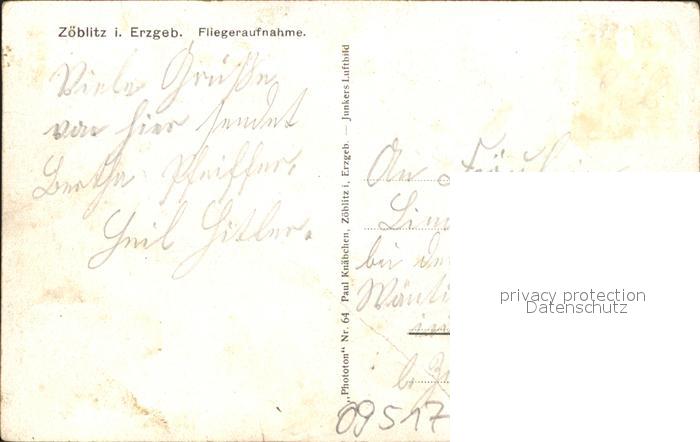 Zöblitz i. Erzgeb. Fliegeraufnahme.
Viele Grüße
von hier sendet
Bertha Pfeiffer.
Heil Hitler.
„Phototon" Nr. 64 Paul Knäbchen, Zöblitz i. Erzgeb. — Junkers Luftbild
An
bei
privacy protection
Datenschutz
09517